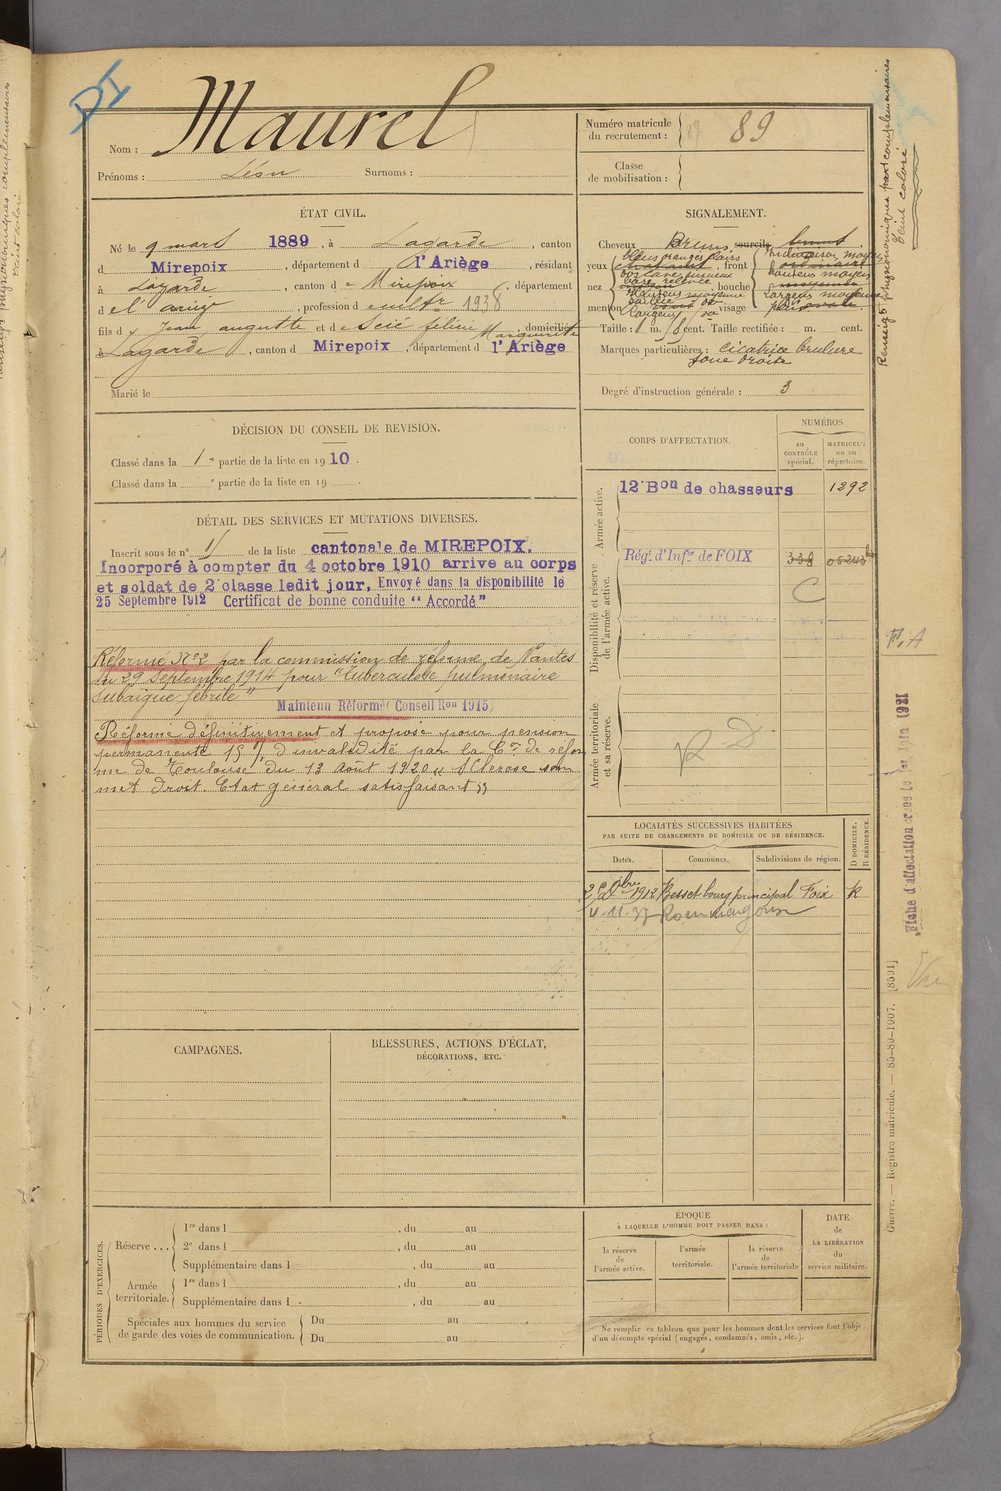 DI
Nom : Maurel
Prénoms : Léon Surnoms :
Numéro matricule du recrutement : 89
Classe de mobilisation :
ÉTAT CIVIL.
Né le 9 mars 1889, à Lagarde, canton
d Mirepoix, département d l'Ariège, résidant
à Lagarde, canton d e Mirepoix, département
d el ariège, profession d cultr 1938
fils d Jean, auguste et d e
Marguerite, domiciliés
à Lagarde, canton d Mirepoix, département d l'Ariège
Marié le
SIGNALEMENT.
Cheveux Bruns sourcils bruns
yeux, front
nez, bouche
menton, visage
Taille : 1 m. cent. Taille rectifiée : m. cent.
Marques particulières : cicatrice brulure
joue droite
Degré d'instruction générale : 3
Renseigts physionomiques complémentaires
Teint coloré
DÉCISION DU CONSEIL DE REVISION.
Classé dans la 1e partie de la liste en 1910.
Classé dans la e partie de la liste en 19 .
DÉTAIL DES SERVICES ET MUTATIONS DIVERSES.
Inscrit sous le n° de la liste cantonale de MIREPOIX.
Incorporé à compter du 4 octobre 1910 arrive au corps
et soldat de 2e classe ledit jour, Envoyé dans la disponibilité le
25 Septembre 1912 Certificat de bonne conduite "Accordé"
Réformé N°2 par la commission de réforme de Nantes
du 29 Septembre 1914 pour "Tuberculose pulmonaire
subaigue fébrile"
Maintenu Réformé (Conseil Ron 1915)
Réformé définitivement et proposé pour pension
permanente 15% d'invalidité par la Con de réfor
me de Toulouse du 13 Août 1920 "Sclérose som
met droit. Etat général satisfaisant"
CORPS D'AFFECTATION.
NUMÉROS
AU CONTRÔLE spécial.
MATRICULE OU AU répertoire.
Armée active.
12e Bon de chasseurs 1292
Disponibilité et réserve de l'armée active.
Régt d'Infie de FOIX 338
C
Armée territoriale et sa réserve.
R D
LOCALITÉS SUCCESSIVES HABITÉES
PAR SUITE DE CHANGEMENTS DE DOMICILE OU DE RÉSIDENCE.
Dates. Communes. Subdivisions de région. D DOMICILE. R RÉSIDENCE.
1912 Besset bourg principal Foix R
4.11.37
CAMPAGNES.
BLESSURES, ACTIONS D'ÉCLAT,
DÉCORATIONS, ETC.
PÉRIODES D'EXERCICES.
Réserve ...
1re dans l , du au
2e dans l , du au
Supplémentaire dans l , du au
Armée territoriale.
1re dans l , du au
Supplémentaire dans l , du au
Spéciales aux hommes du service de garde des voies de communication.
Du au
Du au
ÉPOQUE
À LAQUELLE L'HOMME DOIT PASSER DANS :
la réserve de l'armée active.
l'armée territoriale.
la réserve de l'armée territoriale
DATE de LA LIBÉRATION du service militaire.
Ne remplir ce tableau que pour les hommes dont les services font l'objet
d'un décompte spécial (engagés, condamnés, omis, etc.).
F.A
Fiche d'affectation créée le 1er Juin 1921
Vu
Guerre. — Registre matricule. — 85-89-1907. [8591]